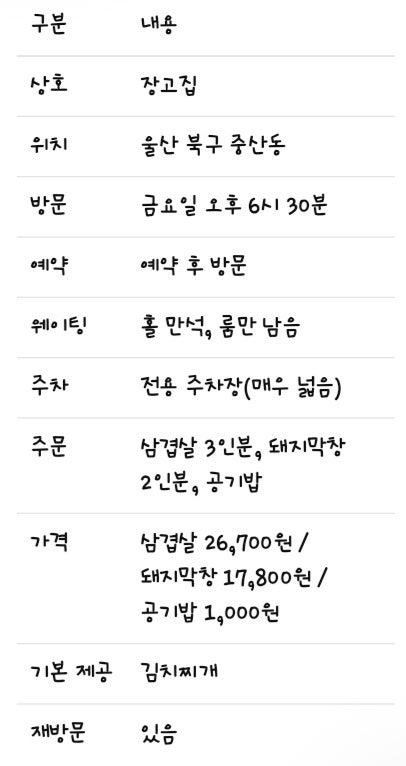 구분 내용
상호 장고집
위치 울산 북구 중산동
방문 금요일 오후 6시 30분
예약 예약 후 방문
웨이팅 홀 만석, 룸만 남음
주차 전용 주차장(매우 넓음)
주문 삼겹살 3인분, 돼지막창
2인분, 공기밥
가격 삼겹살 26,700원 /
돼지막창 17,800원 /
공기밥 1,000원
기본 제공 김치찌개
재방문 있음